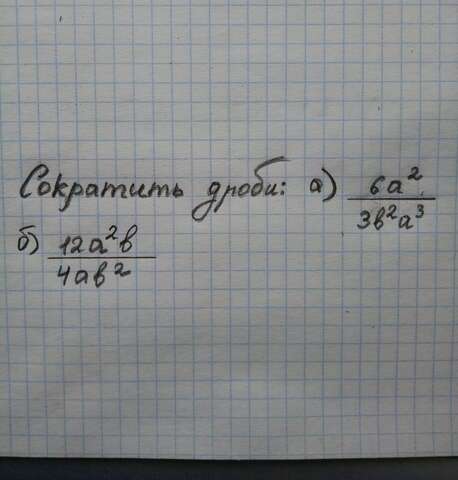 Сократить дроби: а) 6a²/3b²a³
б) 12a²b/4ab²